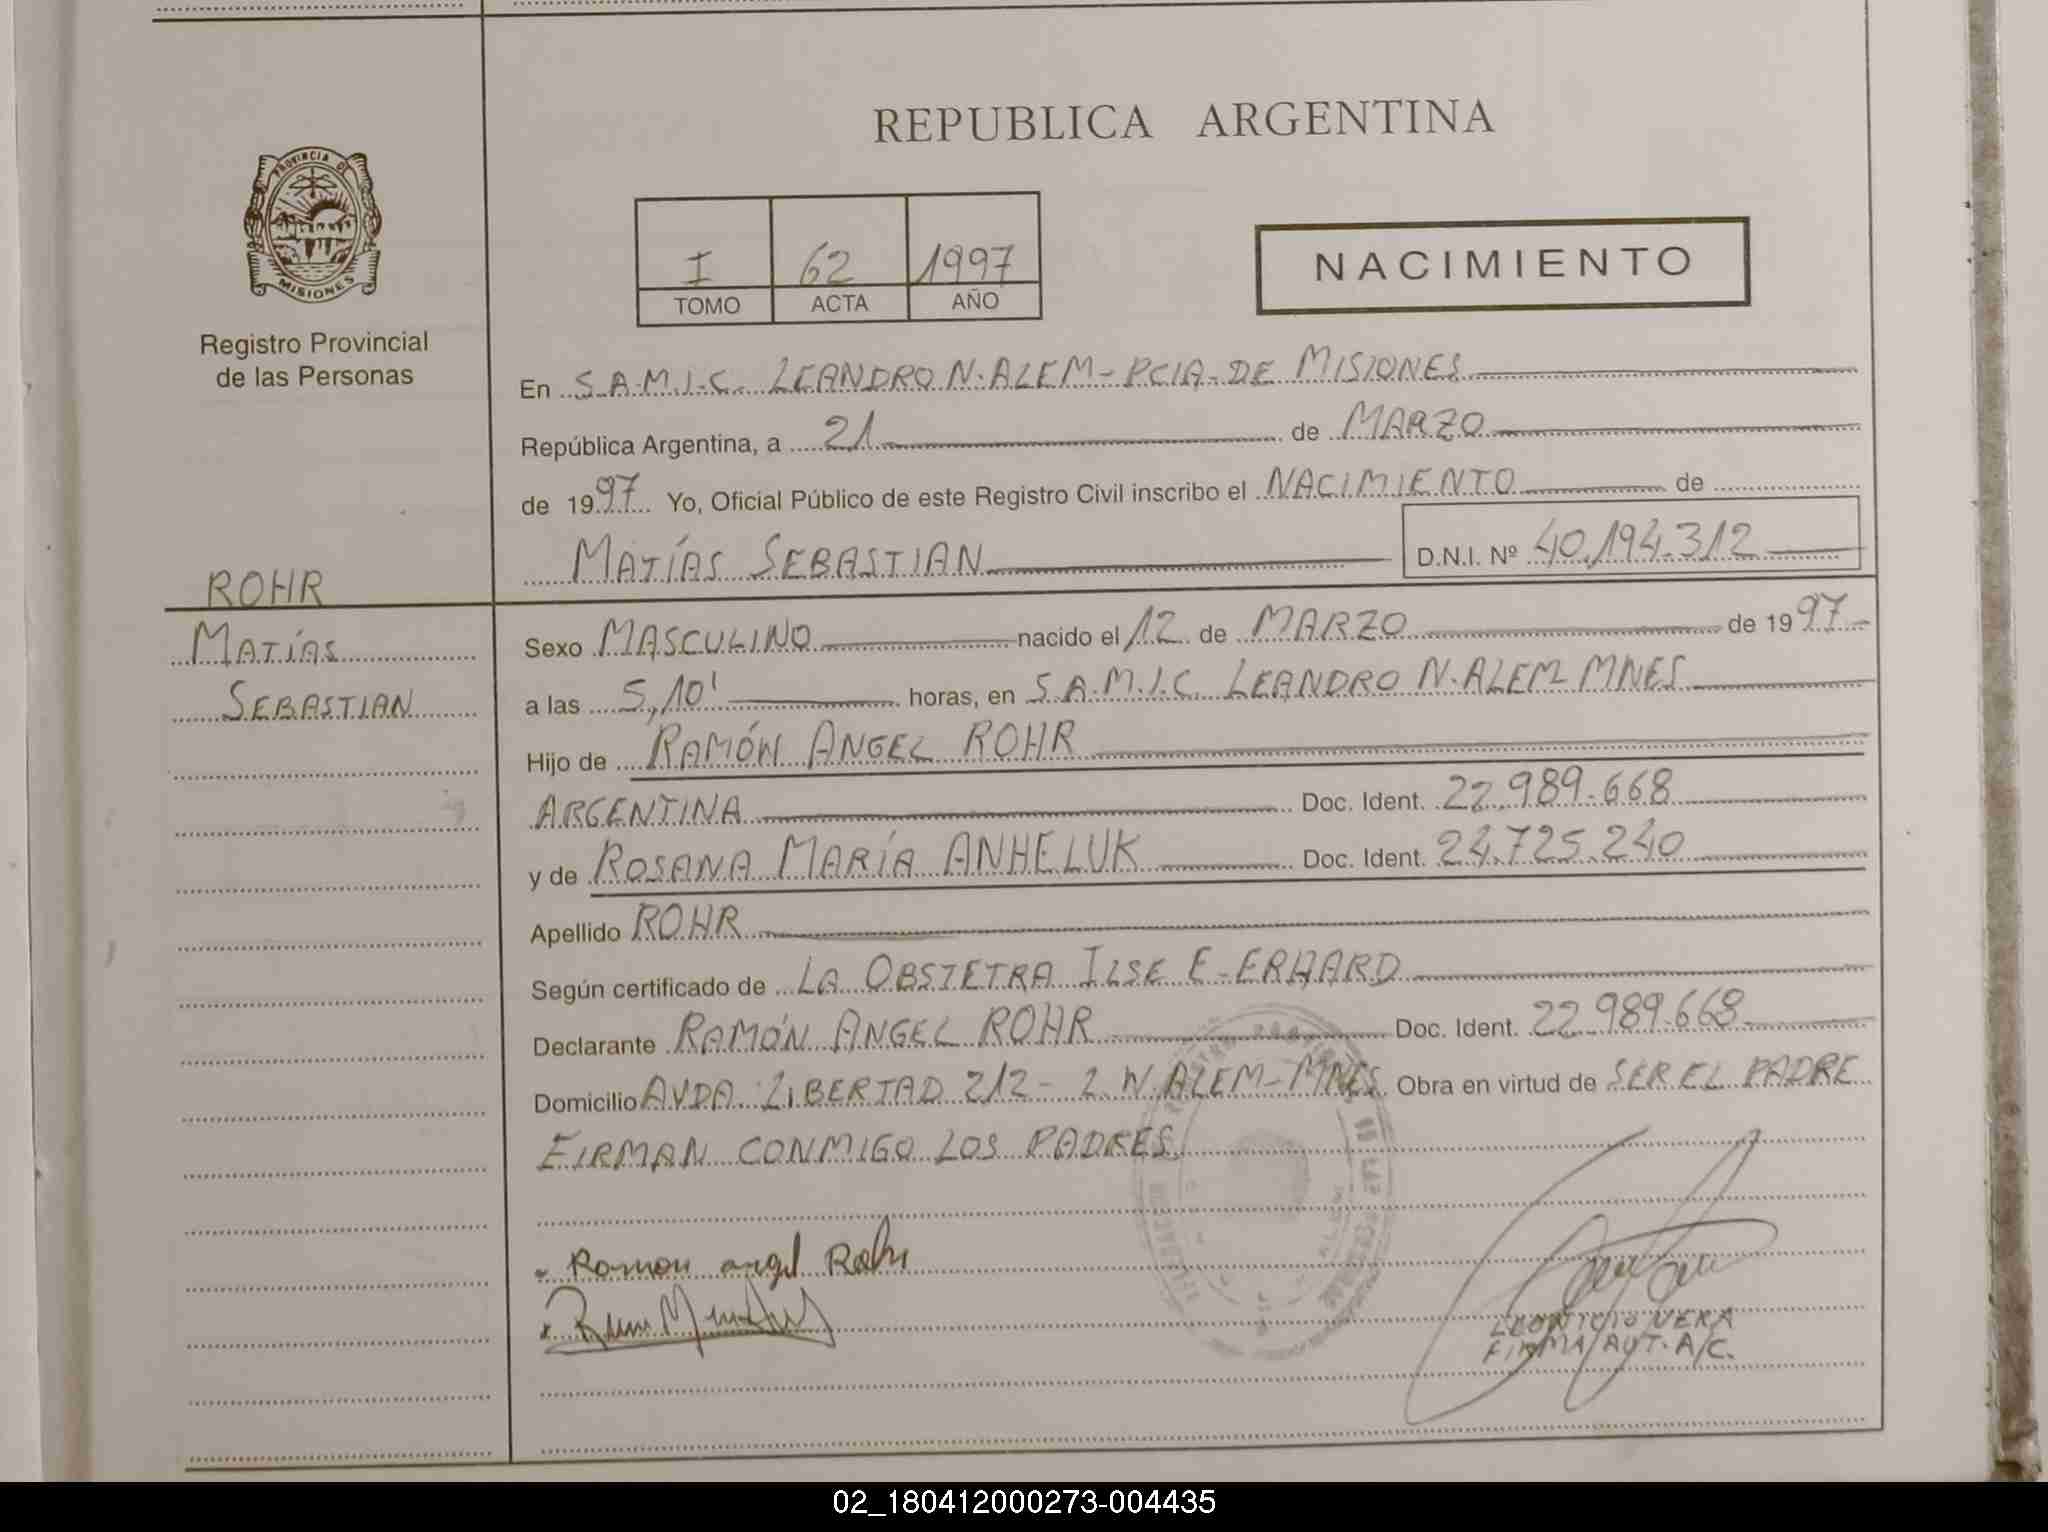 REPUBLICA ARGENTINA
PROVINCIA DE
MISIONES
Registro Provincial
de las Personas
I 62 1997
TOMO ACTA AÑO
NACIMIENTO
En S.A.M.I.C. LEANDRO N. ALEM - PCIA. DE MISIONES
República Argentina, a 21 de MARZO
de 1997 Yo, Oficial Público de este Registro Civil inscribo el NACIMIENTO de
MATÍAS SEBASTIAN D.N.I. Nº 40.194.312
ROHR
MATÍAS
SEBASTIAN
Sexo MASCULINO nacido el 12 de MARZO de 1997
a las 5,10' horas, en S.A.M.I.C. LEANDRO N. ALEM MNES
Hijo de RAMÓN ANGEL ROHR
ARGENTINA Doc. Ident. 22.989.668
y de ROSANA MARÍA ANHELUK Doc. Ident. 24.725.240
Apellido ROHR
Según certificado de LA OBSTETRA ILSE E. ERHARD
Declarante RAMÓN ANGEL ROHR Doc. Ident. 22.989.668
Domicilio AVDA. LIBERTAD 212 - L. N. ALEM - MNES Obra en virtud de SER EL PADRE
FIRMAN CONMIGO LOS PADRES
Ramon angel Rohr
LEONTICIO VERA
FIRMA AUT. A/C.
02_180412000273-004435